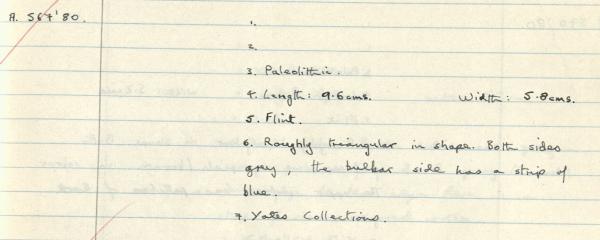 A. 567'80.
1.
2.
3. Paleolithic.
4. Length: 9.6cms. Width: 5.8cms.
5. Flint.
6. Roughly triangular in shape. Both sides
grey, the bulbar side has a strip of
blue.
7. Yates Collections.